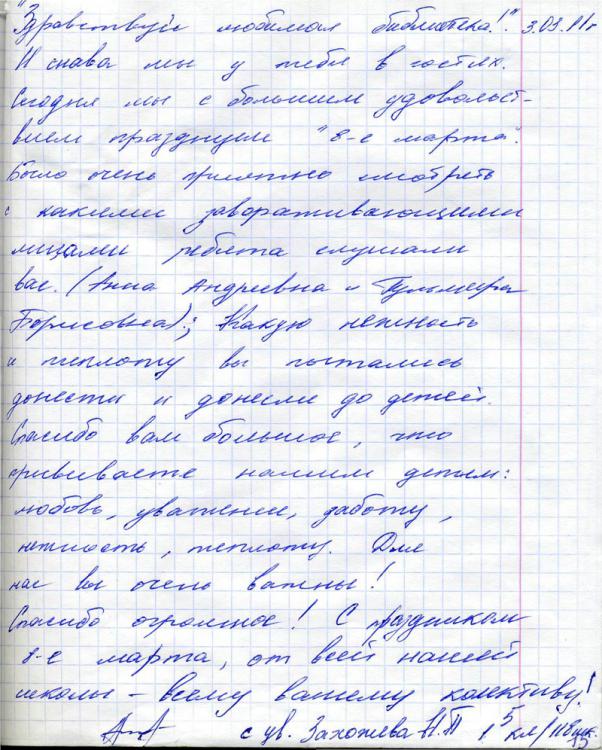 "Здравствуй любимая библиотека!". 3.03.11г
И снова мы у тебя в гостях.
Сегодня мы с большим удовольст-
вием празднуем "8-е марта".
Было очень приятно смотреть
с какими завораживающими
лицами ребята слушали
вас. (Анна Андреевна и Гульмира
Борисовна).; Какую нежность
и теплоту вы пытались
донести и донесли до детей.
Спасибо вам большое, что
прививаете нашим детям:
любовь, уважение, заботу,
нежность, теплоту. Для
нас вы очень важны!
Спасибо огромное! С праздником
8-е марта, от всей нашей
школы – всему вашему колективу!
с ув. Захожева 1 5 кл/